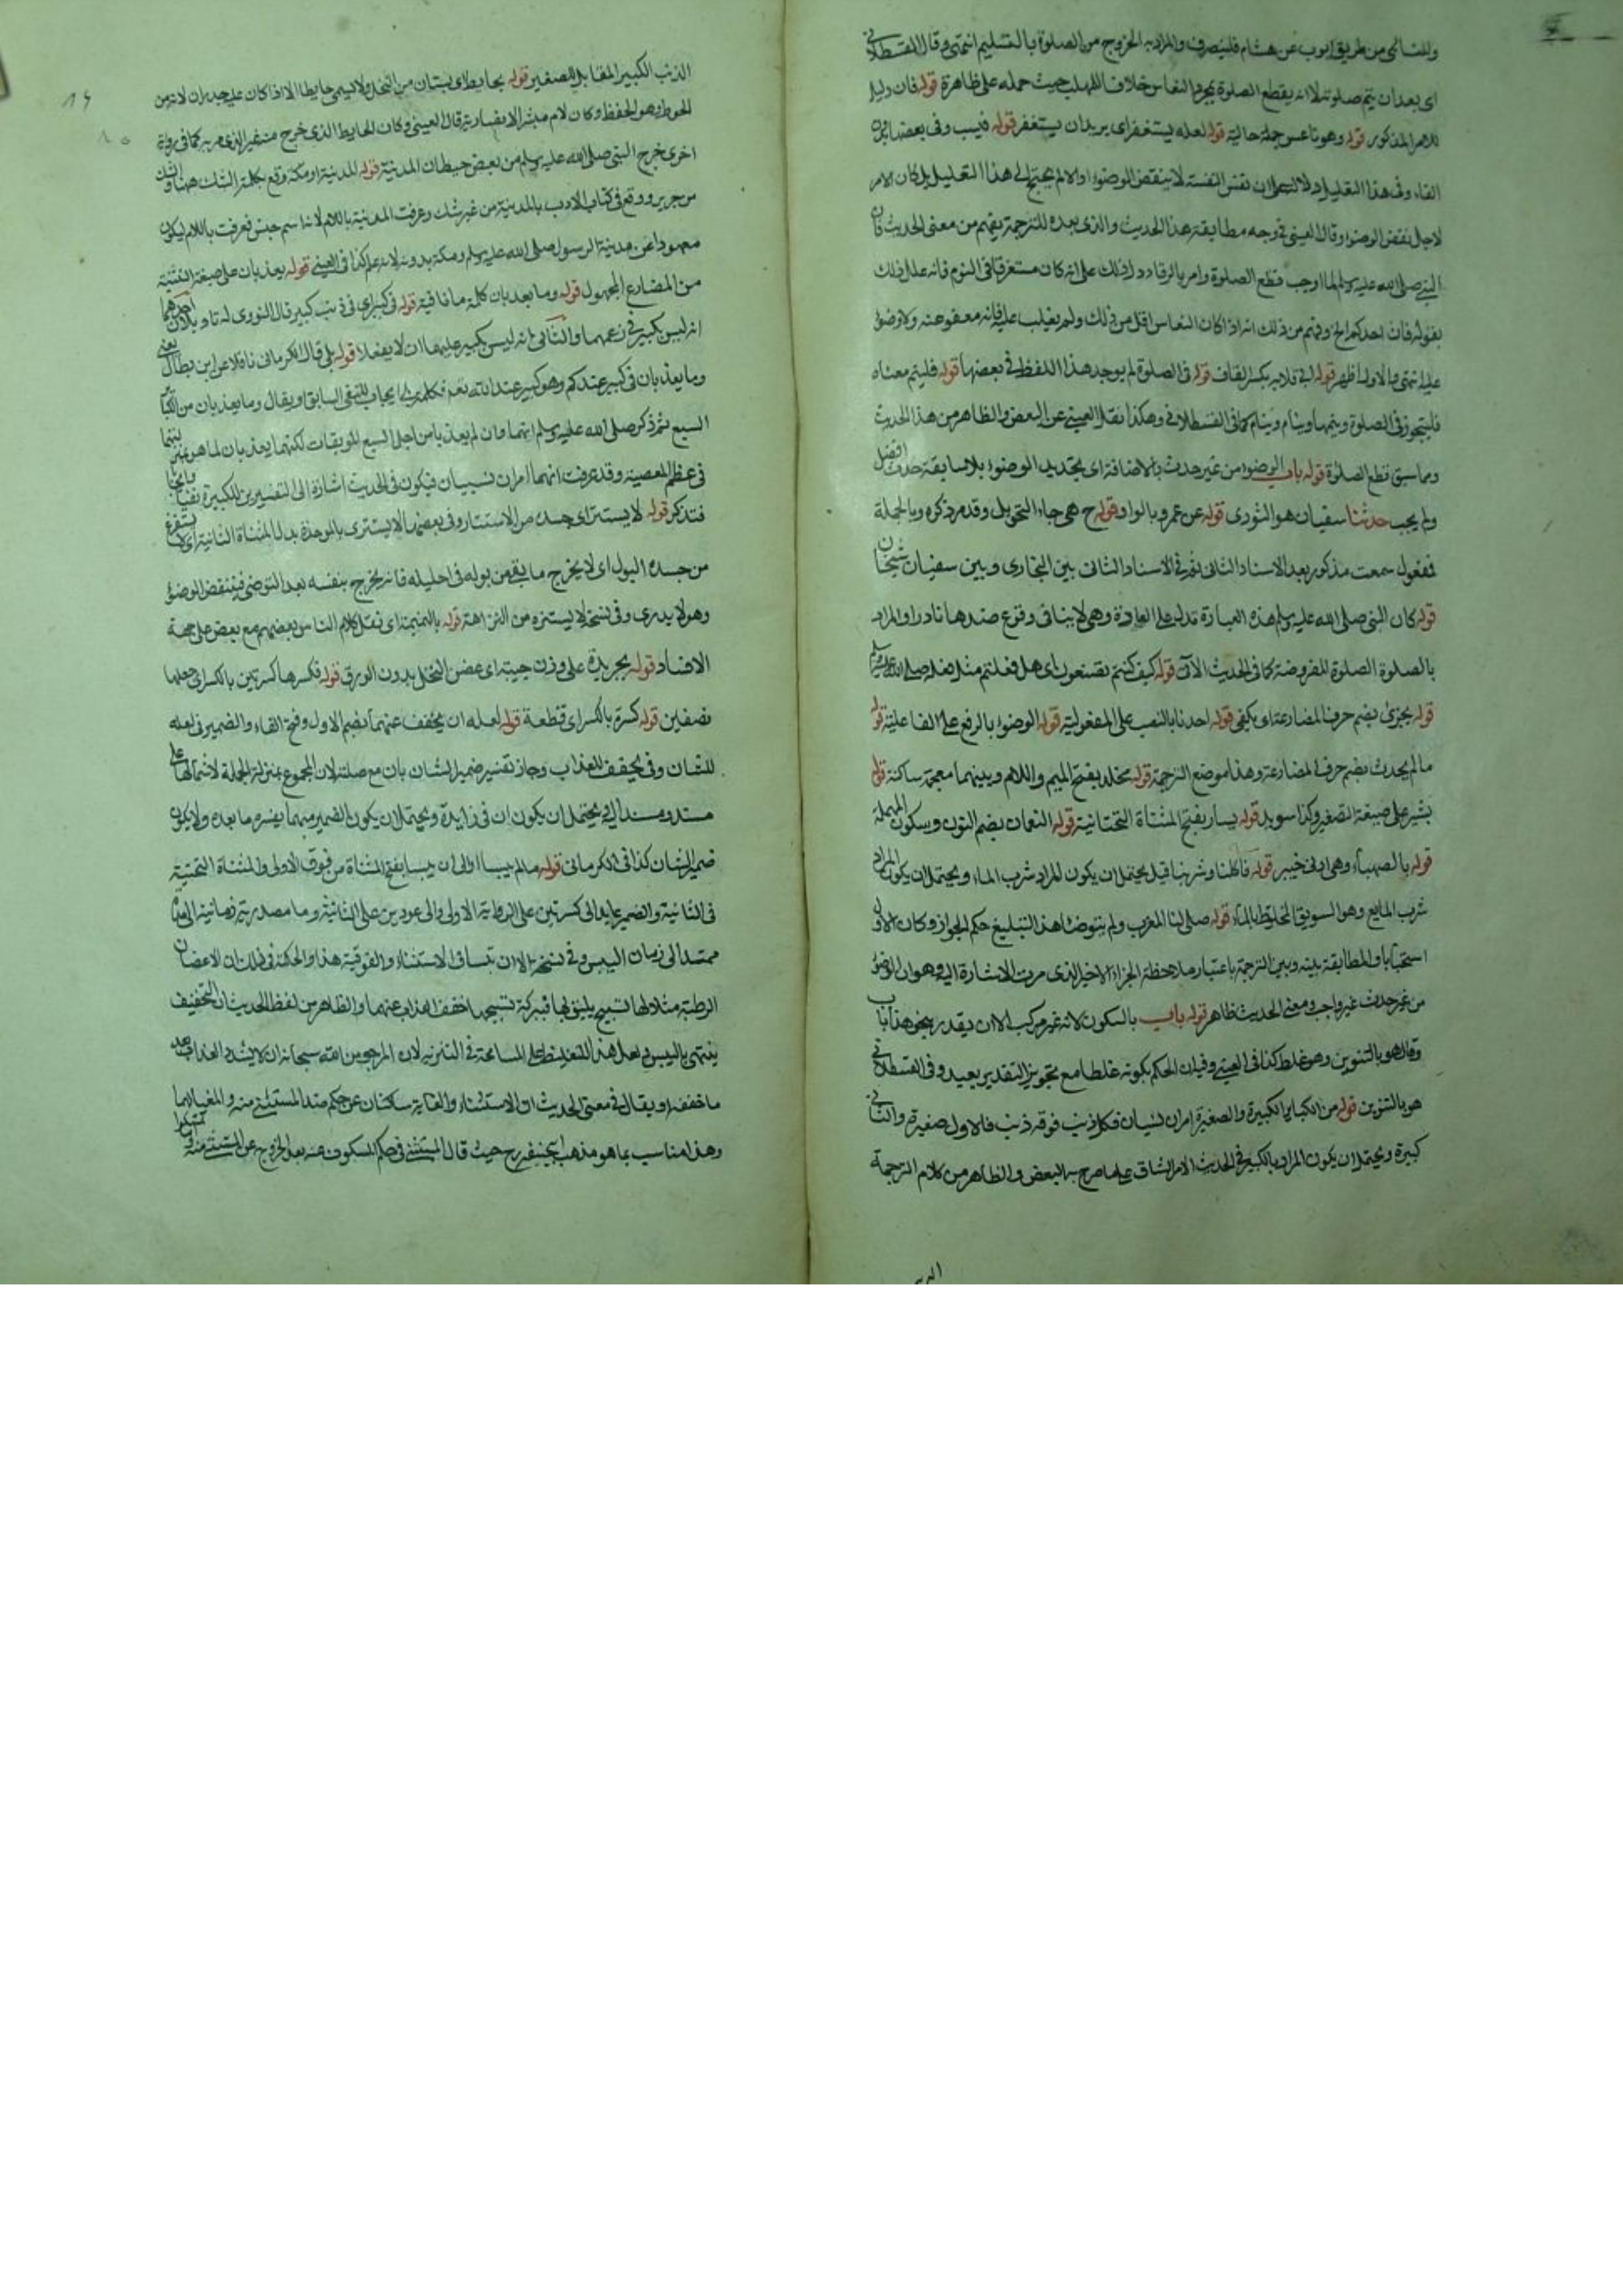 وللنسائي من طريق ايوب عن هشام فلينصرف والمراد به الخروج من الصلوة بالتسليم انتهى وقال القسطلاني
اى بعد ان يتم صلوته لا انه يقطع الصلوة بمجرد النعاس خلافا للمهلب حيث حمله على ظاهره قوله فان دليل
للامر المذكور قوله وهو ناعس جملة حالية قوله لعله يستغفر اى يريد ان يستغفر قوله فيسب وفى بعضها بدون
الفاء وفى هذا التعليل دلالة على ان نفس النعسة لا ينقض الوضوء اولا لم يحتج الى هذا التعليل بل كان الامر
لاجل نقض الوضوء وقال العينى فى وجه مطابقة هذا الحديث والذى بعده للترجمة يفهم من معنى الحديث فان
النبى صلى الله عليه وسلم لما اوجب قطع الصلوة وامر بالرقاد دل ذلك على انه كان مستغرقا فى النوم فانه علل ذلك
بقوله فان احدكم الخ وفهم من ذلك انه اذا كان النعاس اقل من ذلك ولم يغلب عليه فانه معفو عنه ولا وضوء
عليه انتهى والاول اظهر قوله ابى قلابة بكسر القاف قوله فى الصلوة لم يوجد هذا اللفظ فى بعضها قوله فلينم معناه
فليتجوز فى الصلوة ويتمها وينام كما فى القسطلانى وهكذا نقل العينى عن البعض والظاهر من هذا الحديث
ومما سبق قطع الصلوة قوله باب الوضوء من غير حدث بالاضافة اى تجديد الوضوء بلا سابقة حدث افضل
ولم يجب حدثنا سفيان هو الثورى قوله عن عمرو بالواو قوله ح هى جاء التحويل وقد مر ذكره وبالجملة
فمفعول سمعت مذكور بعد الاسناد الثانى نعم فى الاسناد الثانى بين البخارى وبين سفيان شيخان
قوله كان النبى صلى الله عليه وسلم هذه العبارة تدل على العادة وهى لا ينافى وقوع ضدها نادرا والمراد
بالصلوة الصلوة المفروضة كما فى الحديث الآتى قوله كيف كنتم تصنعون اى هل فعلتم مثل فعله صلى الله عليه وسلم
قوله يجزئ بضم حرف المضارعة اى يكفى قوله احدنا بالنصب على المفعولية قوله الوضوء بالرفع على الفاعلية قوله
ما لم يحدث بضم حرف المضارعة وهذا موضع الترجمة قوله مخلد بفتح الميم واللام وبينهما معجمة ساكنة قوله
بشير على صيغة التصغير وكذا سويد قوله يسار بفتح المثناة التحتانية قوله النعمان بضم النون وسكون المهملة
قوله بالصهباء وهى ادنى خيبر قوله فاكلنا وشربنا قيل يحتمل ان يكون المراد شرب الماء ويحتمل ان يكون المراد
شرب المايع وهو السويق المخلوط بالماء قوله صلى لنا المغرب ولم يتوضا هذا التبليغ حكم الجواز وكان الاول
استحبابا والمطابقة بينه وبين الترجمة باعتبار ملاحظة الجزء الاخير الذى مرت الاشارة اليه وهو ان الوضوء
من غير حدث غير واجب ومعنى الحديث ظاهر قوله باب بالسكون لانه غير مركب الا ان يقدر نحو هذا باب
وقال هو بالتنوين وهو غلط كذا فى العينى وفيه ان الحكم بكونه غلطا مع تجويز التقدير بعيد وفى القسطلانى
هو بالتنوين قوله من الكباير الكبيرة والصغيرة امران نسبيان فكل ذنب فوقه ذنب فالاول صغيرة والثانى
كبيرة ويحتمل ان يكون المراد بالكبير فى الحديث الامر الشاق على ما صرح به البعض والظاهر من كلام الترجمة
الذنب الكبير المقابل للصغير قوله بحايط اى بستان من النخل ولا يسمى حايطا الا اذا كان عليه جدران لانه من
الحوط وهو الحفظ وكان لام مبشر الانصارية قال العينى وكان الحايط الذى خرج منه غير الذى مر به كما فى رواية
اخرى خرج النبى صلى الله عليه وسلم من بعض حيطان المدينة قوله المدينة او مكة وقع بكلمة الشك ههنا والشك
من جرير ووقع فى كتاب الادب بالمدينة من غير شك وعرفت المدينة باللام لانه اسم جنس فعرفت باللام ليكون
معهودا عن مدينة الرسول صلى الله عليه وسلم ومكة بدونه لانه علم كذا فى العينى قوله يعذبان على صيغة التثنية
من المضارع المجهول قوله وما يعذبان كلمة ما نافية قوله فى كبير اى فى ذنب كبير قال النووى له تاويلان احدهما
انه ليس بكبير فى زعمهما والثانى انه ليس بكبير عليهما ان لا يفعلا قوله بلى قال الكرمانى ناقلا عن ابن بطال يعنى
وما يعذبان فى كبير عندكم وهو كبير عند الله نعم فكلمة بلى ايجاب للنفى السابق او يقال وما يعذبان من الكبائر
السبع ثم ذكر صلى الله عليه وسلم انهما وان لم يعذبا من اجل السبع الموبقات لكنهما يعذبان لما هو
فى عظم المعصية وقد عرفت انهما امران نسبيان فيكون فى الحديث اشارة الى التفسيرين للكبيرة
فتذكر قوله لا يستتر اى جسده من الاستتار وفى بعضها لا يستبرى بالموحدة بدل المثناة الثانية اى لا يستفرغ
من جسده البول اى لا يخرج ما بقى من بوله فى احليله فانه يخرج بنفسه بعد التوضى فينقض الوضوء
وهو لا يدرى وفى نسخة لا يستنزه من النزاهة قوله بالنميمة اى نقل كلام الناس بعضهم مع بعض على جهة
الافساد قوله بجريدة على وزن اى غصن النخل بدون الورق قوله فكسرها كسرتين بالكسر اى جعلها
نصفين قوله كسرة بالكسر اى قطعة قوله لعله ان يخفف عنهما بضم الاول وفتح الفاء والضمير فى لعله
للشان وفى يخفف للعذاب وجاز تفسير ضمير الشان بان مع صلته لان المجموع بمنزلة الجملة لاشتمالها على
مسند ومسند اليه ويحتمل ان يكون ان فى زايدة ويحتمل ان يكون الضمير مبهما يفسره ما بعده ولا يكون
ضمير الشان كذا فى الكرمانى قوله ما لم ييبسا او الى ان ييبسا بفتح المثناة من فوق الاولى والمثناة التحتية
فى الثانية والضمير عايد الى كسرتين على الرواية الاولى والى عودين على الثانية وما مصدرية زمانية الى مدة
ممتدا الى زمان اليبس وفى نسخة الا ان تيبسا فى الاستثناء والفوقية هذا والحكمة فى ذلك ان الاغصان
الرطبة مثلا لها تسبيح يليق بها فببركة تسبيحها خفف العذاب عنهما والظاهر من لفظ الحديث ان التخفيف
ينتهى باليبس المسامحة فى التنزيه لان المرجو من الله سبحانه ان لا يشدد العذاب بعد
ما خففه او يقال فى معنى الحديث ان الاستثناء والغاية ساكتان عن حكم ضد المستثنى منه والمغيا
وهذا مناسب بما هو مذهب ابى حنيفة رح حيث قال المستثنى فى حكم المسكوت عنه بعد الخروج عن المستثنى منه